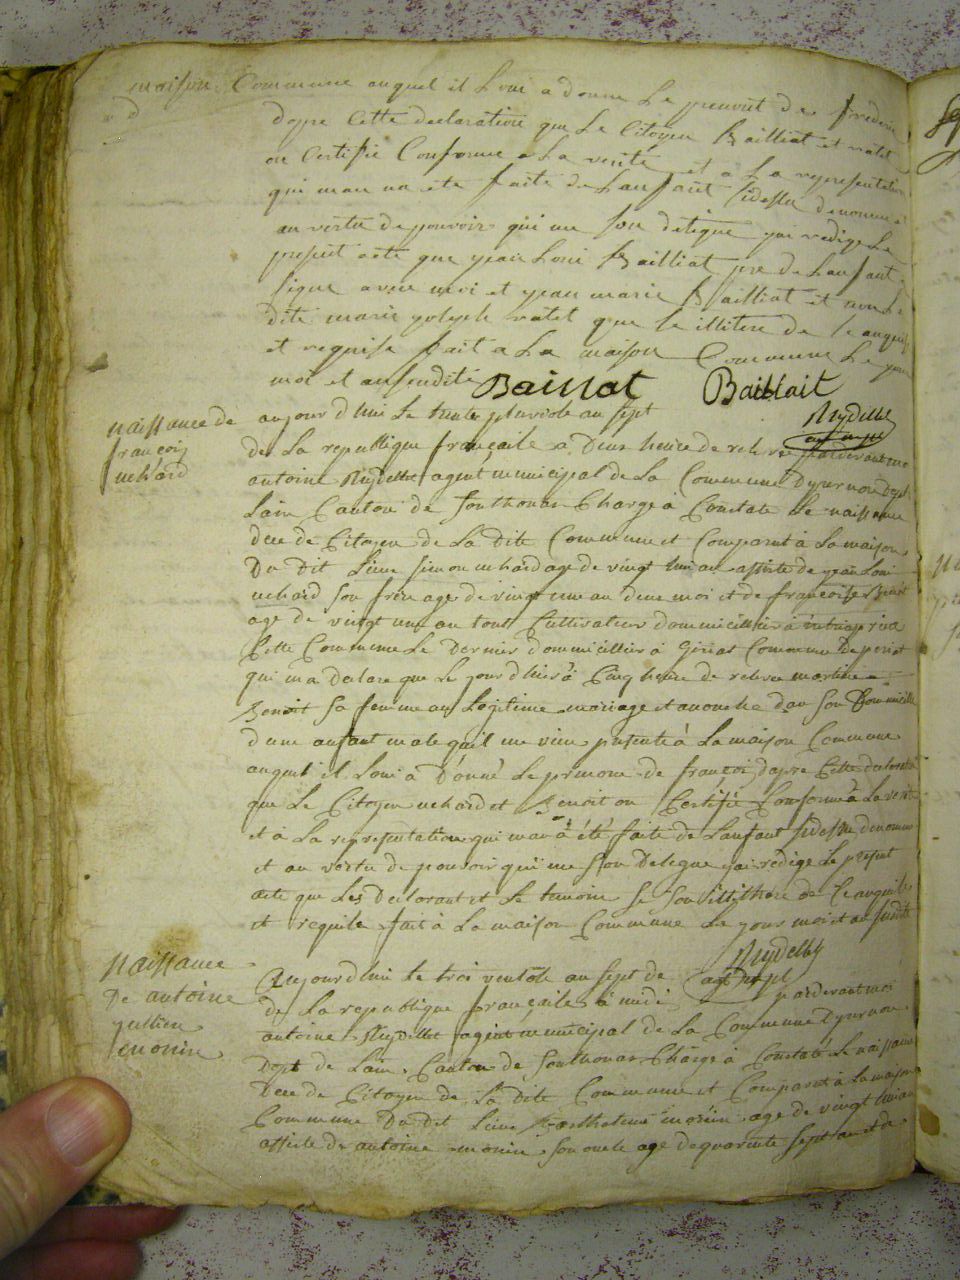 maison Commune auquel il Loui a donne Le prenont de frederic
dapre Cette declaration que Le Citoyen Bailliat et ratel
on Certifie Conforme a La verite et a La representation
qui mau na ete faite de Lanfant sidessu denomme
au vertu de pouvoir qui me son deligue jai redige Le
present acte que jean Loui Bailliat pre de Lanfant
signe avec moi et jean marie Bailliat et non La
dite marie joseph ratel que se illitere de
et requise fait a La maison Commune Le jour
moi et an sudite
Baillat Baillait
Reydellet
naissance de
francois
uchard
aujourdhui Le trente pluviose an sept
de La republique française a Deux heure de releve pardevant moi
antoine Reydellet agent municipal de La Commune Dyzernore Dept
Lain Canton de Sonthonax Charge à Constate Le naissance
Dece de Citoyen de La Dite Commune et Comparut à La maison
Du Dit Lieu simon uchard age de vingt huit an assiste de jean Loui
uchard son frere age de vingt une an deux moi et de françoise Benoit
age de vingt une an tout Cultivateur domicillier à
Cette Commune Le Dernier domicillier à Giriat Commune de
qui ma Declare que Le jour dhier à Cinq heure de releve martine
Benoit sa femme au Legitime mariage et acouche dan son Domicille
dune anfant male quil me vien presente à La maison Commune
auquel il Loui à Donné Le prenom de françoi dapre Cette declaration
que Le Citoyen uchard et Benoit on Certifie Conforme à La verite
et à La representation qui mau à été faite de Lanfant sidessu denomme
et au vertu de pouvoir qui me son Delegue jai redige Le present
acte que Les Declarant et Le temoin se son illithere de
et requise fait à La maison Commune Le jour moi et an sudite
Reydellet
agt mpl
Naissance
De antoine
jullien
monin
Aujourdhui Le troi ventose an sept de
de La republique française à midi pardevant moi
antoine Reydellet agent municipal de La Commune Dyzernore
Dept de Lain Canton de Sonthonax Charge à Constate Le naissance
Dece de Citoyen de La Dite Commune et Comparut à La maison
Commune Du Dit Lieu Barthelemi monin age de vingt huit an
assiste de antoine monin son oncle age de quarente sept an et de